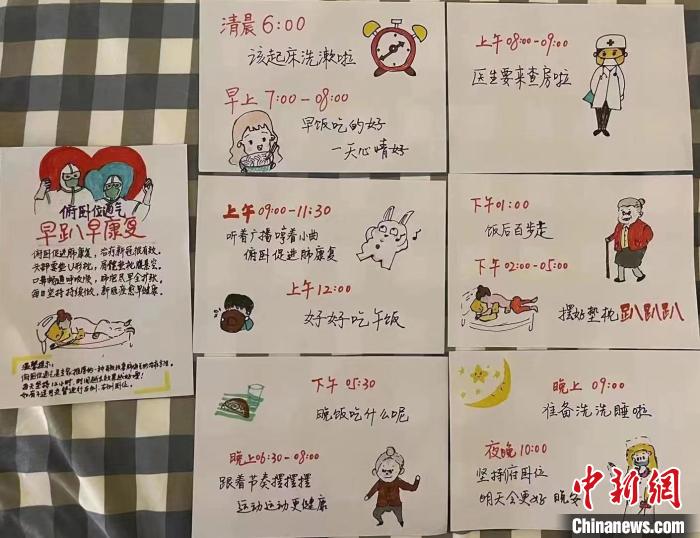 俯卧位通气
早趴早康复
俯卧促进肺康复，治疗新冠很有效。
头部需垫U形枕，
口鼻畅通呼吸顺，
每日坚持持续做，新冠痊愈早健康。
温馨提示：
清晨6:00
该起床洗漱啦
早上7:00-08:00
早饭吃的好
一天心情好
上午08:00-09:00
医生要来查房啦
上午09:00-11:30
听着广播哼着小曲
俯卧促进肺康复
上午12:00
好好吃午饭
下午01:00
饭后百步走
下午02:00-05:00
摆好垫枕趴趴趴
下午05:30
晚饭吃什么呢
晚上06:30-08:00
跟着节奏摆摆摆
运动运动更健康
晚上09:00
准备洗洗睡啦
夜晚10:00
坚持俯卧位
明天会更好 晚安
中新网
Chinanews.com